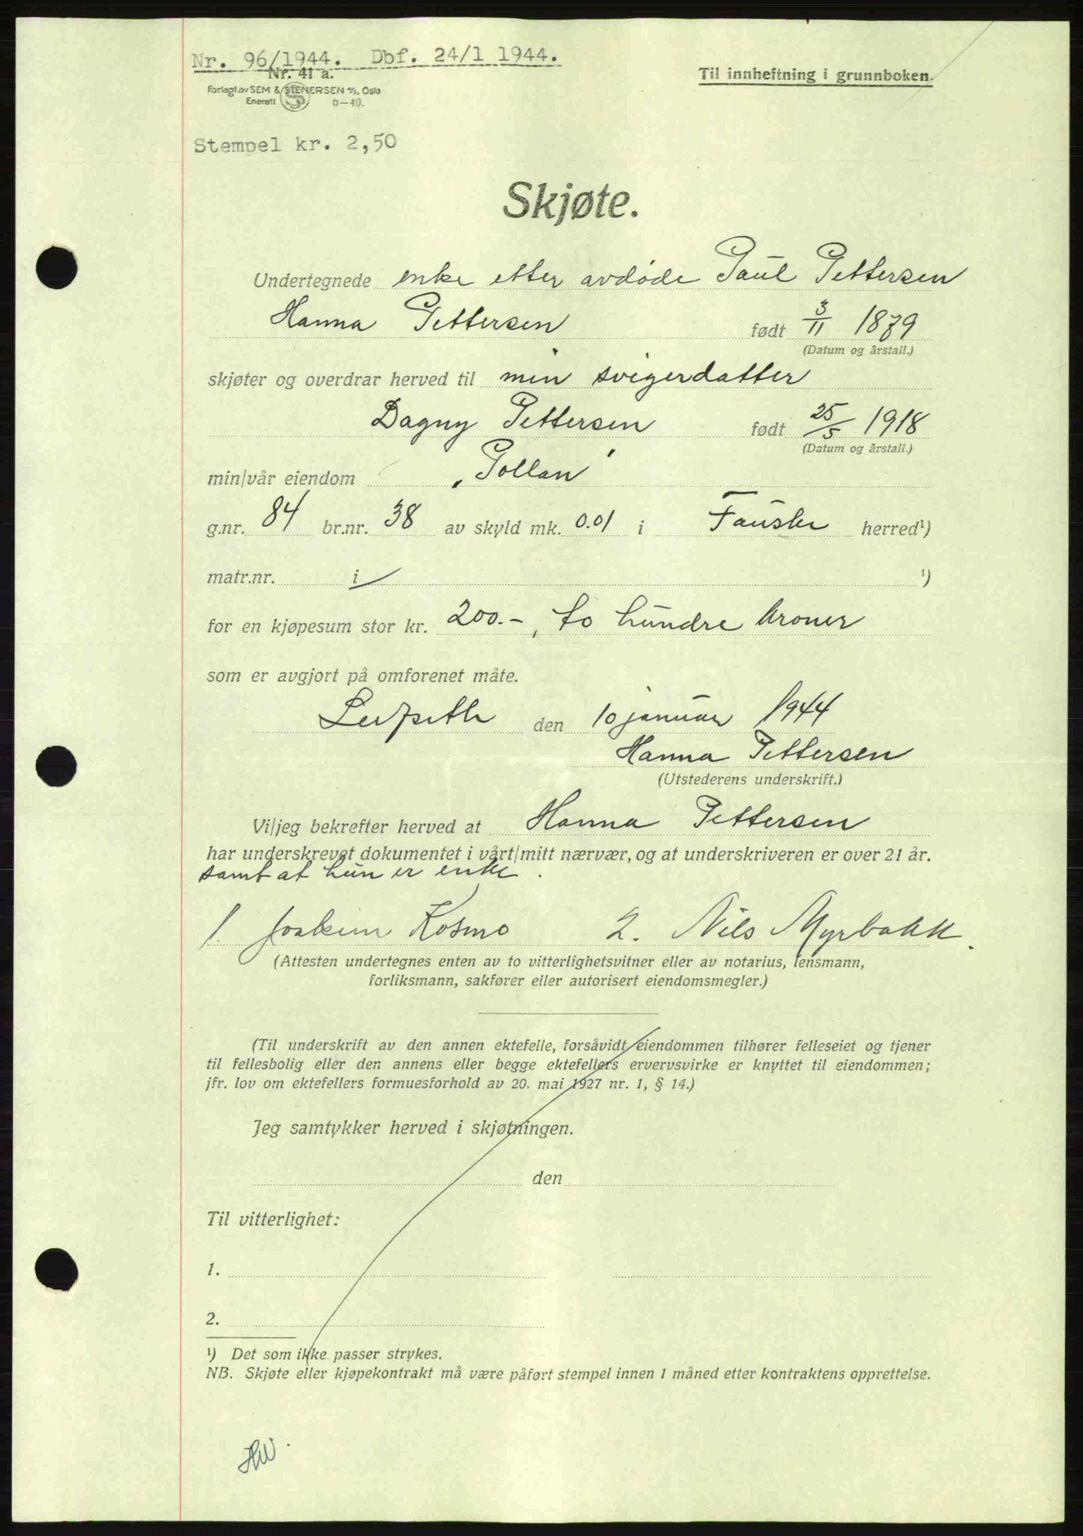 Nr. 96/1944. Dbf. 24/1 1944.
Nr. 41 a.
Til innheftning i grunnboken.
Forlagt av SEM & STENERSEN A/S, Oslo
Enerett S 6-40.
Stempel kr. 2,50
Skjøte.
Undertegnede enke etter avdøde Paul Pettersen
Hanna Pettersen født 3/11 1879
(Datum og årstall.)
skjøter og overdrar herved til min svigerdatter
Dagny Pettersen født 25/5 1918
(Datum og årstall.)
min/vår eiendom „Pollan"
g.nr. 84 br.nr. 38 av skyld mk. 0.01 i Fauske herred¹)
matr.nr. i ¹)
for en kjøpesum stor kr. 200.-, to hundre kroner
som er avgjort på omforenet måte.
den 10 januar 1944
Hanna Pettersen
(Utstederens underskrift.)
Vi/jeg bekrefter herved at Hanna Pettersen
har underskrevet dokumentet i vårt/mitt nærvær, og at underskriveren er over 21 år.
samt at hun er enke.
1. Joakim Kosmo 2. Nils Myrbakk.
(Attesten undertegnes enten av to vitterlighetsvitner eller av notarius, lensmann,
forliksmann, sakfører eller autorisert eiendomsmegler.)
(Til underskrift av den annen ektefelle, forsåvidt eiendommen tilhører felleseiet og tjener
til fellesbolig eller den annens eller begge ektefellers ervervsvirke er knyttet til eiendommen;
jfr. lov om ektefellers formuesforhold av 20. mai 1927 nr. 1, § 14.)
Jeg samtykker herved i skjøtningen.
den
Til vitterlighet:
1.
2.
¹) Det som ikke passer strykes.
NB. Skjøte eller kjøpekontrakt må være påført stempel innen 1 måned etter kontraktens opprettelse.